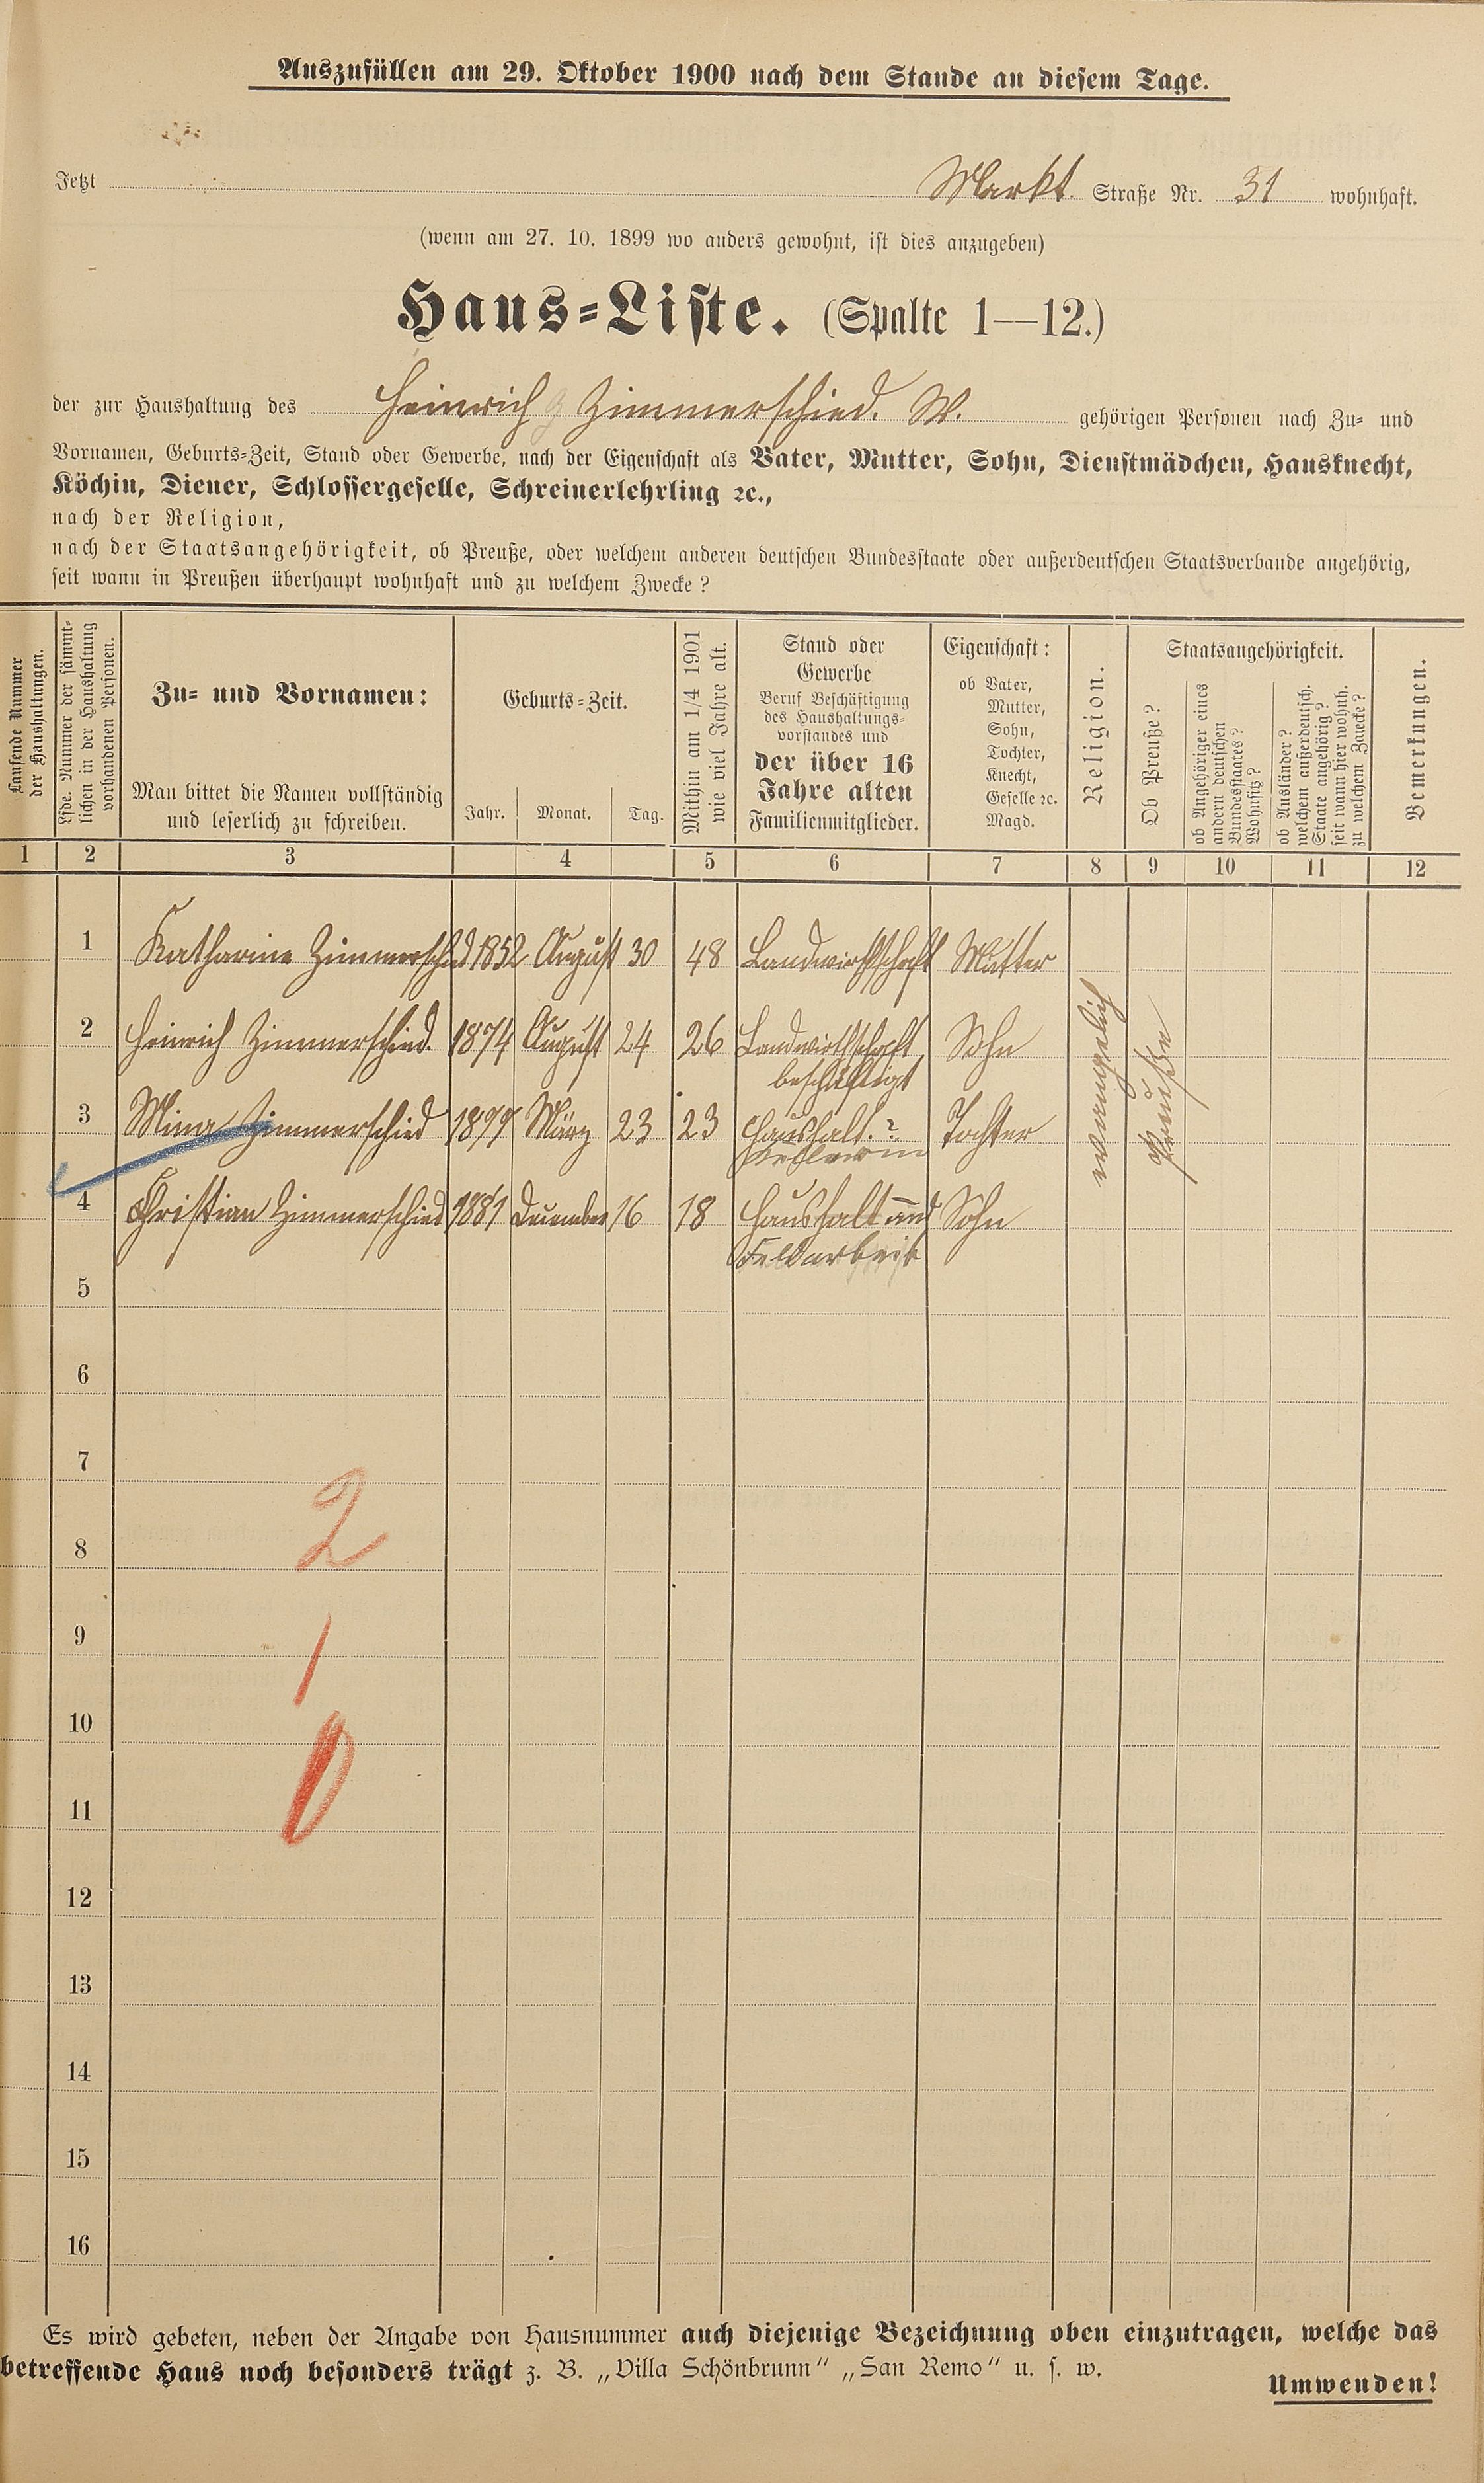 Auszufüllen am 29. Oktober 1900 nach dem Stande an diesem Tage.
Jetzt Markt. Straße Nr. 31 wohnhaft.
(wenn am 27. 10. 1899 wo anders gewohnt, ist dies anzugeben)
Haus-Liste. (Spalte 1—12.)
der zur Haushaltung des Heinrich Zimmerschied. W. gehörigen Personen nach Zu- und
Vornamen, Geburts-Zeit, Stand oder Gewerbe, nach der Eigenschaft als Vater, Mutter, Sohn, Dienstmädchen, Hausknecht,
Köchin, Diener, Schlossergeselle, Schreinerlehrling ꝛc.,
nach der Religion,
nach der Staatsangehörigkeit, ob Preuße, oder welchem anderen deutschen Bundesstaate oder außerdeutschen Staatsverbande angehörig,
seit wann in Preußen überhaupt wohnhaft und zu welchem Zwecke?
Laufende Nummer
der Haushaltungen.
Lfde. Nummer der sämmt-
lichen in der Haushaltung
vorhandenen Personen.
Zu- und Vornamen:
Man bittet die Namen vollständig
und leserlich zu schreiben.
Geburts-Zeit.
Jahr. Monat. Tag.
Mithin am 1/4 1901
wie viel Jahre alt.
Stand oder
Gewerbe
Beruf Beschäftigung
des Haushaltungs-
vorstandes und
der über 16
Jahre alten
Familienmitglieder.
Eigenschaft:
ob Vater,
Mutter,
Sohn,
Tochter,
Knecht,
Geselle ꝛc.
Magd.
Religion.
Staatsangehörigkeit.
Ob Preuße?
ob Angehöriger eines
andern deutschen
Bundesstaates?
Wohnsitz?
ob Ausländer?
welchem außerdeutsch.
Staate angehörig?
seit wann hier wohnh.
zu welchem Zwecke?
Bemerkungen.
1 2 3 4 5 6 7 8 9 10 11 12
1 Katharine Zimmerschied 1852 August 30 48 Landwirthschaft Mutter
2 Heinrich Zimmerschied. 1874 August 24 26 Landwirthschaft Sohn
beschäftigt
3 Mina Zimmerschied 1877 März 23 23 Haushalt. ? Tochter
4 Christian Zimmerschied 1881 December 16 18 Haushalt und Sohn
Feldarbeit
evangelisch
Preuße
5
6
7
8
2
9
1
10
0
11
12
13
14
15
16
Es wird gebeten, neben der Angabe von Hausnummer auch diejenige Bezeichnung oben einzutragen, welche das
betreffende Haus noch besonders trägt z. B. „Villa Schönbrunn" „San Remo" u. s. w.
Umwenden!